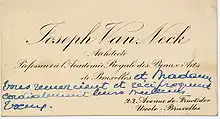 Joseph Van Neck
Architecte
Professeur à l'Académie Royale des Beaux-Arts
de Bruxelles et Madame
vous remercient et réciproquent
cordialement leurs meilleurs
vœux.
23 Avenue de
Uccle-Bruxelles